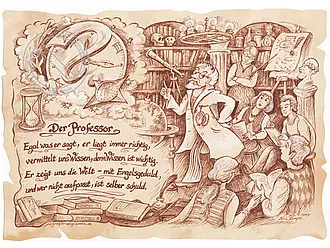 Der Professor
Egal was er sagt, er liegt immer richtig,
vermittelt uns Wissen, denn Wissen ist wichtig.
Er zeigt uns die Welt - mit Engelsgeduld,
und wer nicht aufpasst, ist selber schuld.